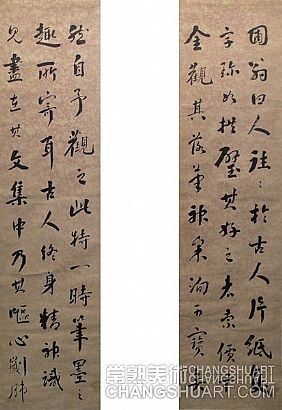 圃翁曰人往々於古人片紙隻
字珍如拱璧其好之者索價千
金觀其落筆神采洵可寶矣
然自予觀之此特一時筆墨之
趣所寄耳古人終身精神識
見盡在其文集中乃其嘔心劌肺
常熟美術